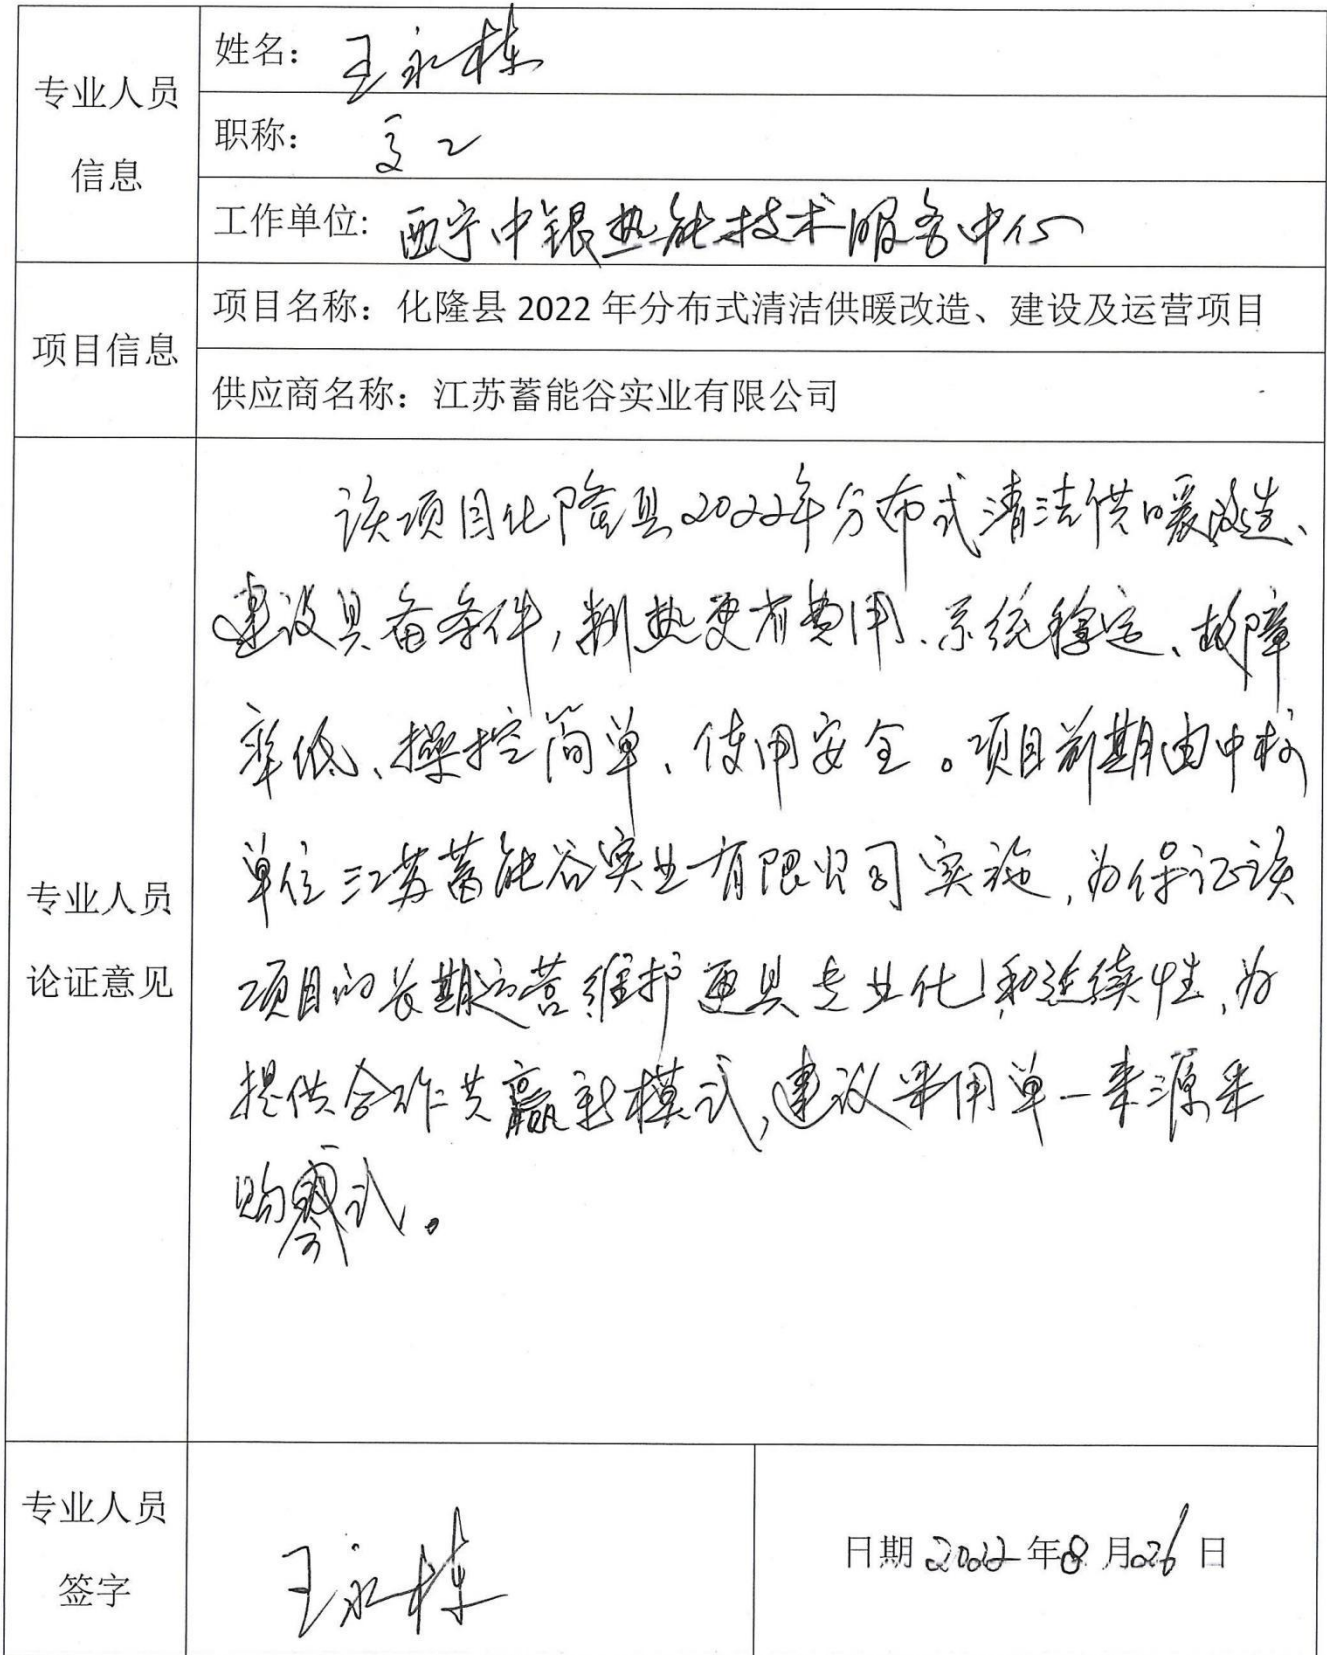 专业人员
信息
姓名： 王永栋
职称： 高工
工作单位： 西宁中银热能技术服务中心
项目信息
项目名称：化隆县 2022 年分布式清洁供暖改造、建设及运营项目
供应商名称：江苏蓄能谷实业有限公司
专业人员
论证意见
该项目化隆县2022年分布式清洁供暖改造、
建设具备条件，制热更省费用、系统稳定、故障
率低、操控简单、使用安全。项目前期由中标
单位江苏蓄能谷实业有限公司实施，为保证该
项目的长期运营维护更具专业化和连续性，为
提供合作共赢新模式，建议采用单一来源采
购 式。
专业人员
签字
王永栋
日期 2022 年 8 月 26 日